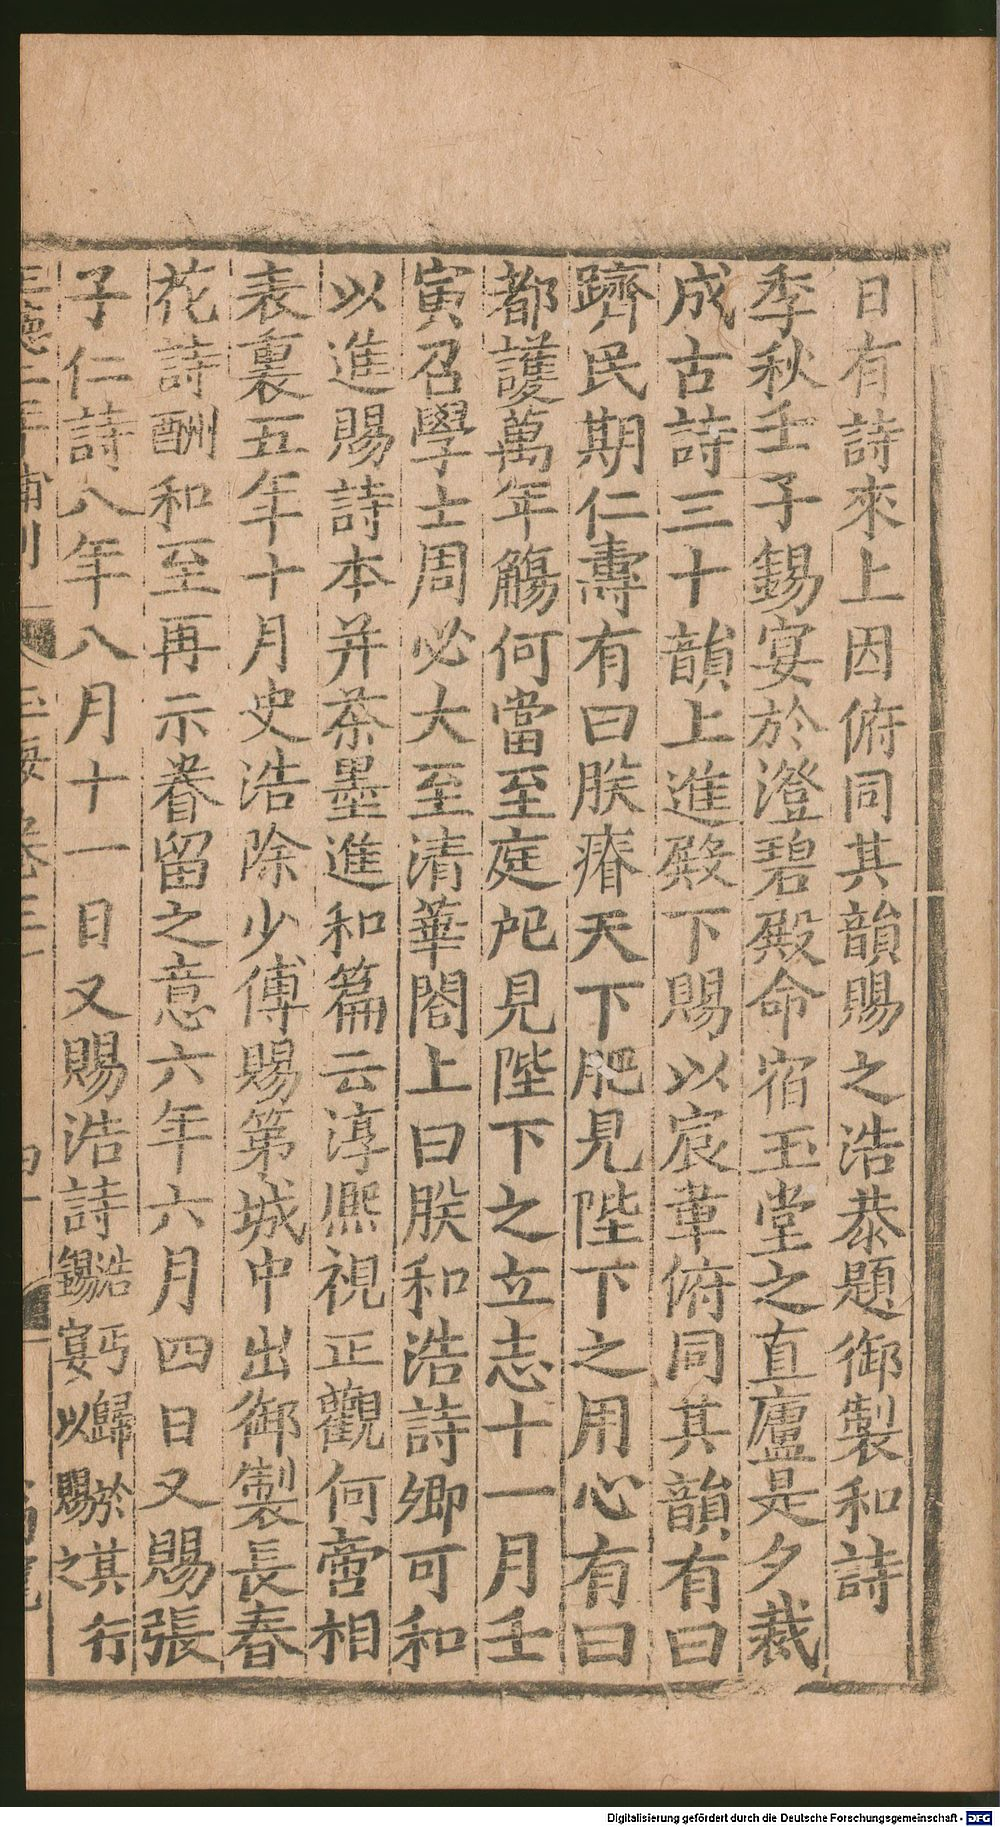 日有詩來上因俯同其韻賜之浩恭題御製和詩
季秋壬子錫宴於澄碧殿命宿玉堂之直廬是夕裁
成古詩三十韻上進殿下賜以宸章俯同其韻有曰
躋民期仁壽有曰朕瘠天下肥見陛下之用心有曰
都護萬年觴何當至庭戺見陛下之立志十一月壬
寅召學士周必大至清華閣上曰朕和浩詩卿可和
以進賜詩本并茶墨進和篇云淳熙視正觀何啻相
表裏五年十月史浩除少傅賜第城中出御製長春
花詩酬和至再示眷留之意六年六月四日又賜張
子仁詩八年八月十一日又賜浩詩浩丐歸於其行
錫宴以賜之
Digitalisierung gefördert durch die Deutsche Forschungsgemeinschaft - DFG